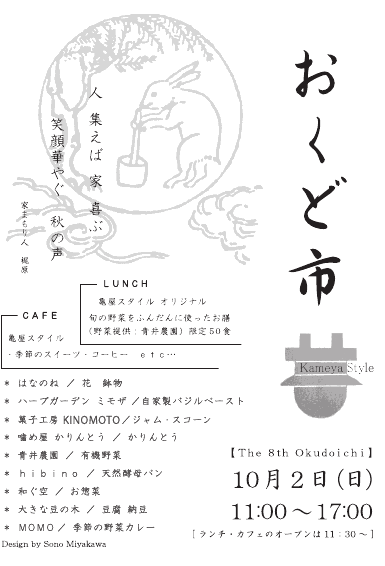 おくど市
人 集えば 家 喜ぶ
笑顔華やぐ 秋の声
家まもり人 梶原
LUNCH
亀屋スタイル オリジナル
旬の野菜をふんだんに使ったお膳
(野菜提供:青井農園) 限定50食
CAFE
亀屋スタイル
・季節のスイーツ・コーヒー etc…
Kameya Style
* はなのね / 花 鉢物
* ハーブガーデン ミモザ/自家製バジルペースト
* 菓子工房 KINOMOTO/ジャム・スコーン
* 噛め屋 かりんとう / かりんとう
* 青井農園 / 有機野菜
* hibino / 天然酵母パン
* 和ぐ空 / お惣菜
* 大きな豆の木 / 豆腐 納豆
* MOMO / 季節の野菜カレー
【The 8th Okudoichi】
10月2日(日)
11:00～17:00
[ランチ・カフェのオープンは11:30～]
Design by Sono Miyakawa